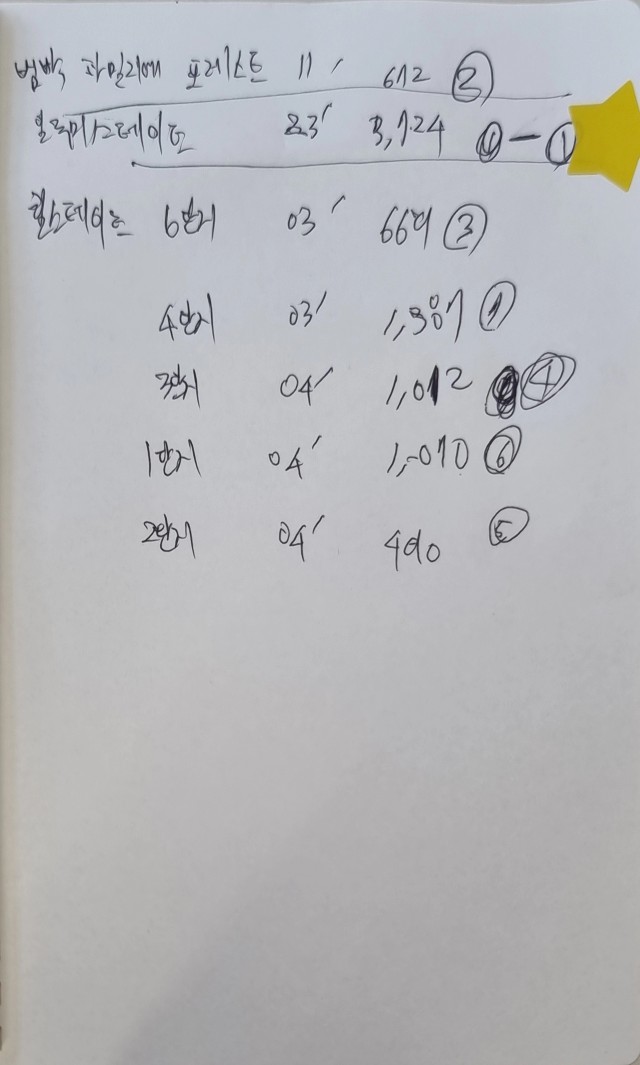 범박 파밀리에 포레스트 11' 612 ②
일루미스테이트 23' 3,724 ⓪-①
힐스테이트 6단지 03' 667 ③
4단지 03' ①
3단지 04' 1,012 ④
1단지 04' 1,070 ⑥
2단지 04' 490 ⑤